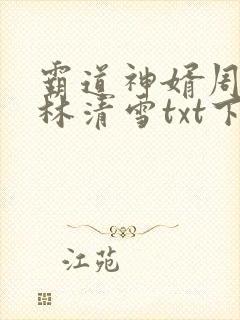 霸道神婿周
林清雪txt下
江苑